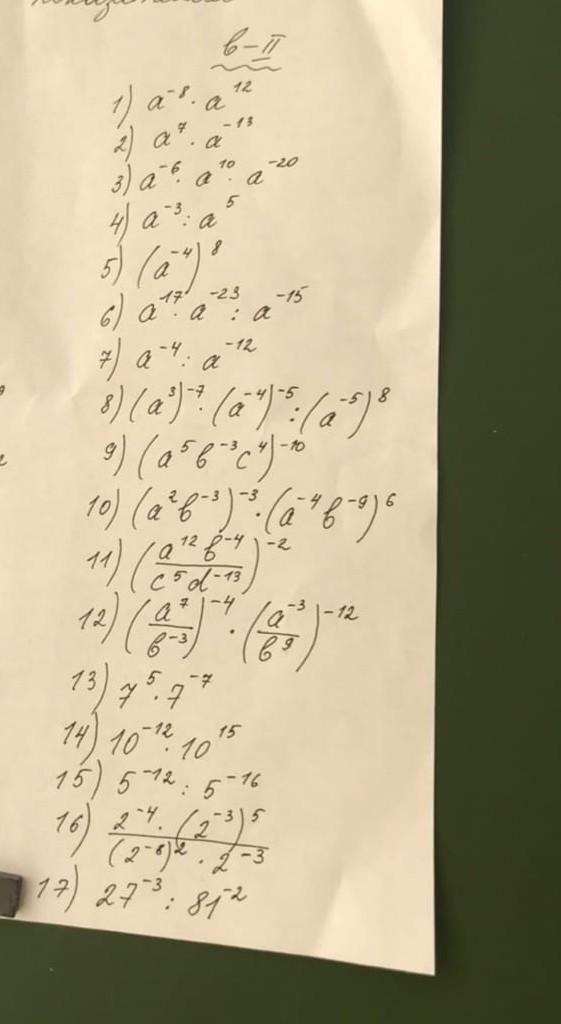 в-II
1) a⁻⁸ · a¹²
2) a⁷ · a⁻¹³
3) a⁻⁶ · a¹⁰ · a⁻²⁰
4) a⁻³ : a⁵
5) (a⁻⁴)⁸
6) a¹⁷ · a⁻²³ : a⁻¹⁵
7) a⁻⁴ : a⁻¹²
8) (a³)⁻⁷ · (a⁻⁴)⁻⁵ : (a⁻⁵)⁸
9) (a⁵b⁻³c⁴)⁻¹⁰
10) (a²b⁻³)⁻³ · (a⁻⁴b⁻⁹)⁶
11) (a¹²b⁻⁴/c⁵d⁻¹³)⁻²
12) (a⁷/b⁻³)⁻⁴ · (a⁻³/b⁹)⁻¹²
13) 7⁵ · 7⁻⁷
14) 10⁻¹² · 10¹⁵
15) 5⁻¹² : 5⁻¹⁶
16) 2⁻⁴ · (2⁻³)⁵ / (2⁻⁸)² · 2⁻³
17) 27⁻³ : 81⁻²